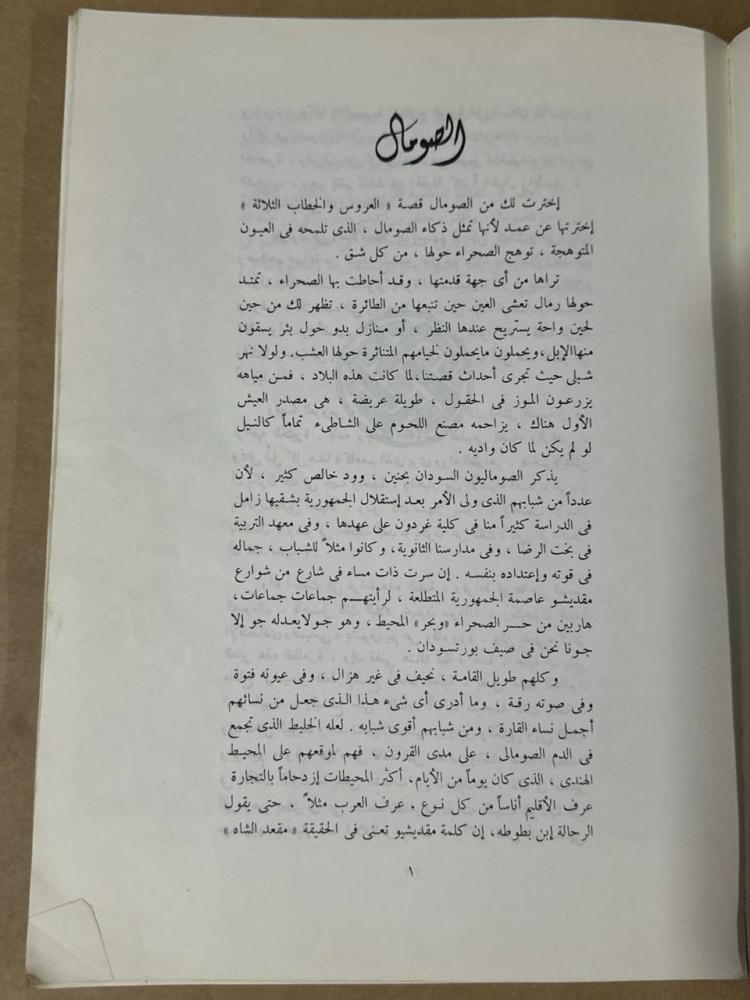 الصومال
إخترت لك من الصومال قصة « العروس والخطاب الثلاثة »
إخترتها عن عمد لأنها تمثل ذكاء الصومال ، الذى تلمحه فى العيون
المتوهجة ، توهج الصحراء حولها ، من كل شق .
تراها من أى جهة قدمتها ، وقد أحاطت بها الصحراء ، تمتد
حولها رمال تعشى العين حين تتبعها من الطائرة ، تظهر لك من حين
لحين واحة يستريح عندها النظر ، أو منازل بدو حول بئر يسقون
منها الإبل، ويحملون مايحملون لخيامهم المتناثرة حولها العشب. ولولا نهر
شبلى حيث تجرى أحداث قصتنا، لما كانت هذه البلاد ، فمن مياهه
يزرعون الموز فى الحقول ، طويلة عريضة ، هى مصدر العيش
الأول هناك ، يزاحمه مصنع اللحوم على الشاطىء تماماً كالنيل
لو لم يكن لما كان واديه .
يذكر الصوماليون السودان بحنين ، وود خالص كثير ، لأن
عدداً من شبابهم الذى ولى الأمر بعد إستقلال الجمهورية بشقيها زامل
فى الدراسة كثيراً منا فى كلية غردون على عهدها ، وفى معهد التربية
فى بخت الرضا ، وفى مدارسنا الثانوية، وكانوا مثلاً للشباب ، جماله
فى قوته وإعتداده بنفسه . إن سرت ذات مساء فى شارع من شوارع
مقديشو عاصمة الجمهورية المتطلعة ، لرأيتهم جماعات جماعات،
هاربين من حر الصحراء «وبحر» المحيط ، وهو جو لايعدله جو إلا
جونا نحن فى صيف بورتسودان .
وكلهم طويل القامة ، نحيف فى غير هزال ، وفى عيونه فتوة
وفى صوته رقة ، وما أدرى أى شىء هذا الذى جعل من نسائهم
أجمل نساء القارة ، ومن شبابهم أقوى شبابه . لعله الخليط الذى تجمع
فى الدم الصومالى ، على مدى القرون ، فهم لموقعهم على المحيط
الهندى ، الذى كان يوماً من الأيام، أكثر المحيطات إزدحاماً بالتجارة
عرف الأقليم أناساً من كل نوع . عرف العرب مثلاً ، حتى يقول
الرحالة إبن بطوطه، إن كلمة مقديشيو تعنى فى الحقيقة « مقعد الشاه »
١